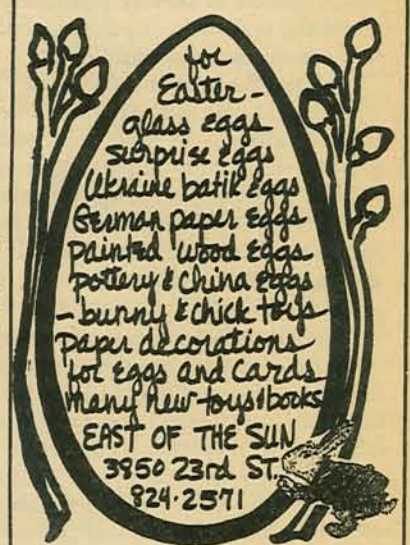 for
Easter-
glass eggs
surprise eggs
Ukraine batik eggs
German paper eggs
painted wood eggs
pottery & china eggs
- bunny & chick toys
paper decorations
for eggs and cards
many new toys & books
EAST OF THE SUN
3850 23rd ST.
824-2571